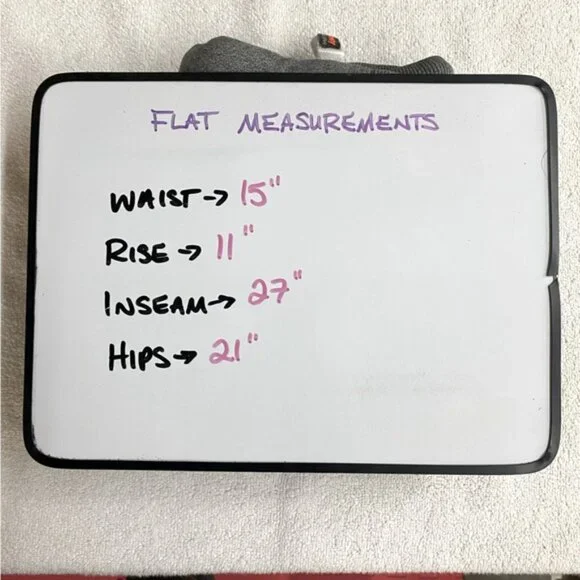 FLAT MEASUREMENTS
WAIST→ 15"
RISE → 11"
INSEAM→ 27"
HIPS→ 21"